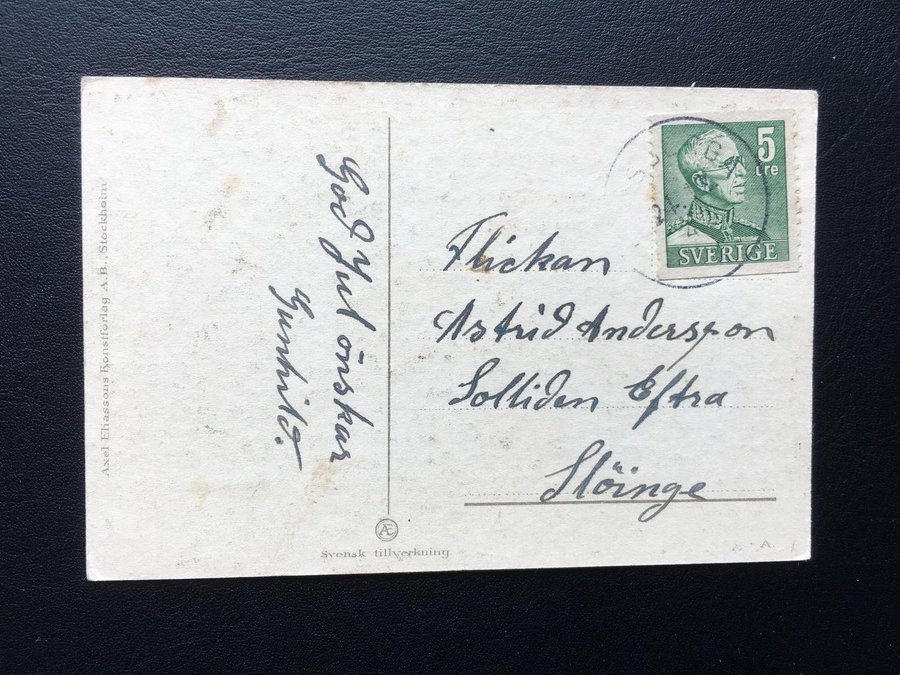 Axel Eliassons Konstförlag A.B., Stockholm
God Jul önskar
Gunhild.
AE
Svensk tillverkning
5
öre
SVERIGE
Flickan
Astrid Andersson
Solliden Eftra
Slöinge
A